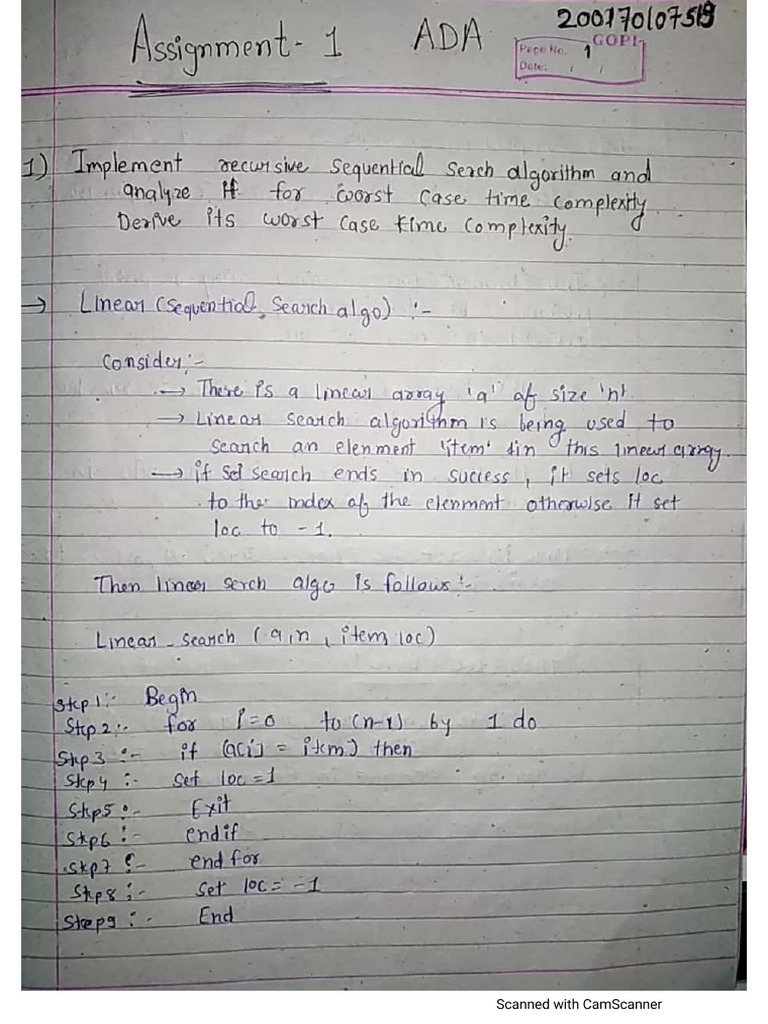 Assignment - 1 ADA
GOPI
Page No. 1
Date: / /
1) Implement recursive sequential serch algorithm and
analyze it for worst case time complexity
Derive its worst case time complexity.
→ Linear (sequential search algo) :-
Consider :-
→ There is a linear array 'a' of size 'n'.
→ Linear search algorithm is being used to
search an elenment 'item' in this linear array.
→ if search ends in success, it sets loc
to the index of the elenment otherwise it set
loc to -1.
Then linear serch algo is follows :-
Linear - search (a, n, item, loc)
Step 1 :- Begin
Step 2 :- for i=0 to (n-1) by 1 do
Step 3 :- if (a[i] = item) then
Step 4 :- set loc = 1
Step 5 :- Exit
Step 6 :- endif
Step 7 :- end for
Step 8 :- set loc = -1
Step 9 :- End
Scanned with CamScanner